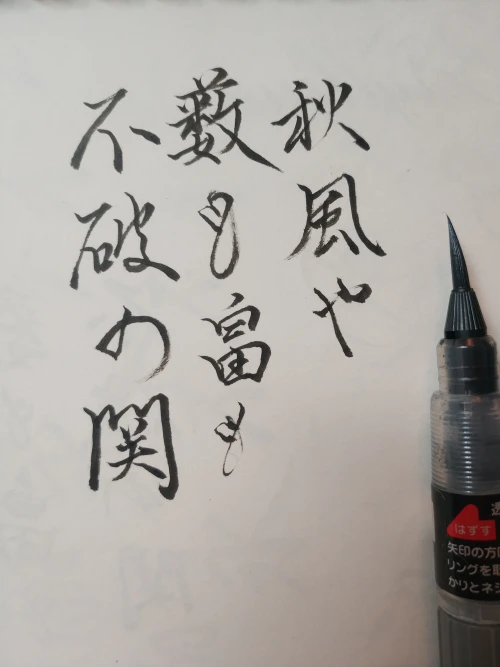 秋風や
藪も畠も
不破の関
はずす
矢印の方
リングを
かりとネ